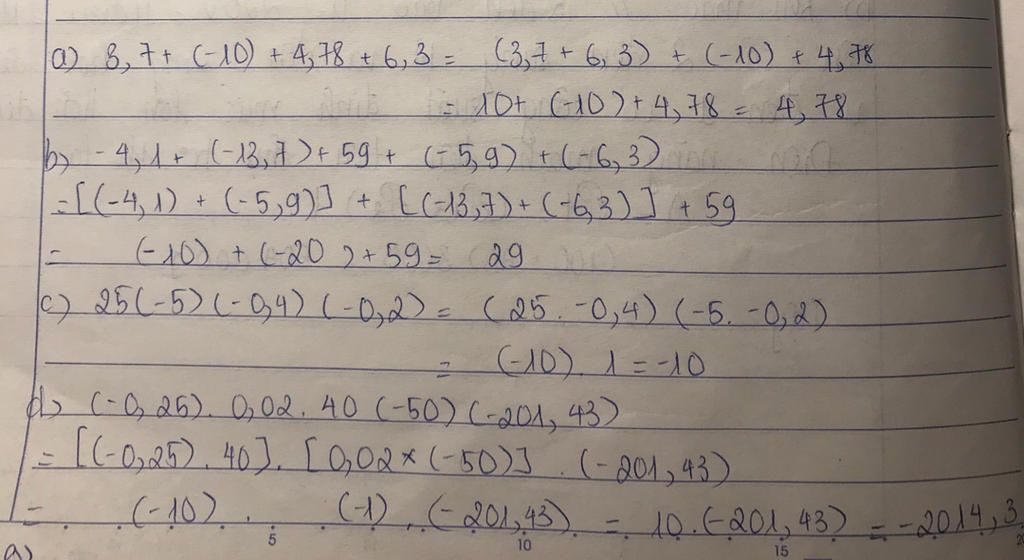 a) 3,7 + (-10) + 4,78 + 6,3 = (3,7 + 6,3) + (-10) + 4,78
= 10 + (-10) + 4,78 = 4,78
b) -4,1 + (-13,7) + 59 + (-5,9) + (-6,3)
= [(-4,1) + (-5,9)] + [(-13,7) + (-6,3)] + 59
= (-10) + (-20) + 59 = 29
c) 25(-5)(-0,4)(-0,2) = (25 . -0,4)(-5 . -0,2)
= (-10) . 1 = -10
d) (-0,25) . 0,02 . 40 (-50)(-201,43)
= [(-0,25) . 40] . [0,02 × (-50)] . (-201,43)
= (-10) . (-1) . (-201,43) = 10 . (-201,43) = -2014,3
5 10 15
a)